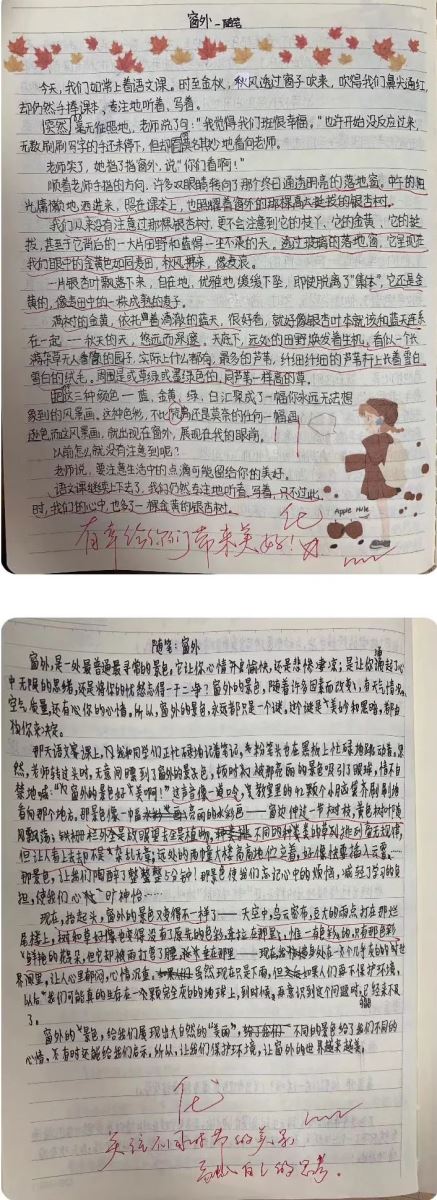 窗外 —随笔
今天，我们如常上着语文课。时至金秋，秋风透过窗子吹来，吹得我们鼻尖通红，
却仍然手捧课本，专注地听着，写着。
突然，毫无征兆地，老师说了句："我觉得我们班很幸福。"也许开始没反应过来，
无数刷刷写字的手还未停下，但却莫名其妙地看向老师。
老师笑了，她指了指窗外，说"你们看啊！"
顺着老师手指的方向，许多双眼睛转向了那个终日通透明亮的落地窗。中午的阳
光慵懒地洒进来，照在课本上，也照耀着窗外的那棵高大挺拔的银杏树。
我们从来没有注意过那棵银杏树，更不会注意到它的枝丫，它的金黄，它的挺
拔，甚至于它背后的一大片田野和蓝得一尘不染的天。透过玻璃的落地窗，它呈现在
我们眼中的金黄色如同麦田，秋风拂来，像麦浪。
一片银杏叶飘落下来，自在地，优雅地缓缓下坠，即使脱离了"集体"，它还是金
黄的，像麦田中的一株成熟的麦子。
满树的金黄，依托着清澈的蓝天，很好看，就好像银杏叶本就该和蓝天连系
在一起——秋天的天，悠远而深邃。天底下，远处的田野焕发着生机，看似一个长
满荒草无人看管的园子，实际上什么都有，最多的芦苇，纤细纤细的芦苇杆上长着雪白
雪白的绒毛。周围是或草绿或墨绿色的，同芦苇一样高的草。
这三种颜色——蓝，金黄，绿，白汇聚成了一幅你永远无法想
象到的风景画。这种色彩，不比梵高还是莫奈的任何一幅画
逊色。而这风景画，就出现在窗外，展现在我的眼前。
以前怎么就没有注意到呢？
老师说，要注意生活中的点滴可能留给你的美好。
语文课继续上下去了，我们仍然专注地听着，写着，只不过此
时，我们的心中，也多了一棵金黄的银杏树。
Apple Hule
优
有幸给你们带来美好！
随笔：窗外
窗外，是一处最普通最寻常的景色，它让你心情开朗愉快，还是悲惨凄凉；是让你涌起了心
中无限的思绪，还是将你的忧愁忘得一干二净？窗外的景色，随着许多因素而改变，有天气情况，
空气质量，还有你你的心情。所以，窗外的景色，永远都只是一个谜，这个谜是美妙和黑暗，都由
你你来决定。
那天语文课上，我和同学们正忙碌地记着笔记，粉笔头也在黑板上忙碌地跳动着，突
然，老师转过头时，无意间瞟到了窗外的景色，顿时被那亮丽的景色吸引了眼球，情不自
禁地喊：
看向那个地方。那景色像一幅亮丽的水彩画——窗边伸过一节树枝，黄色树叶随
风飘荡；铁栅栏外是放眼望去全是植物，不同的种类的草列排列着无规律，
但让人看上去却不是杂乱无章；远处的两幢大楼高高地伫立着，好像快要插入云霄……
那景色，让我们陶醉了整整五分钟！那景色使我们忘记心中的烦恼，减轻了学习的负
担，使我们心旷神怡……
现在，抬起头，窗外的景色又变得不一样了——天空中，乌云密布，豆大的雨点打在那烂
尾楼上，树和草好像也变得没有了原先的色彩，
鲜艳的花朵，但它却被雨打弯了腰，
界间里，让人心里郁闷，心情沉重，虽然现在只是下雨，但如果人们再不保护环境，
以后我们可能真的生存在一个颗完全灰的的地球上，到时候，再意识到这个问题时，已经来不及
了。
窗外的景色，给我们展现出大自然的"美丽"，不同的景色给了我们不同的
心情，不有时还能给我们启示。所以，让我们保护环境，让窗外的世界越来越美。
优
关注不同时节的美景
自己的思考。